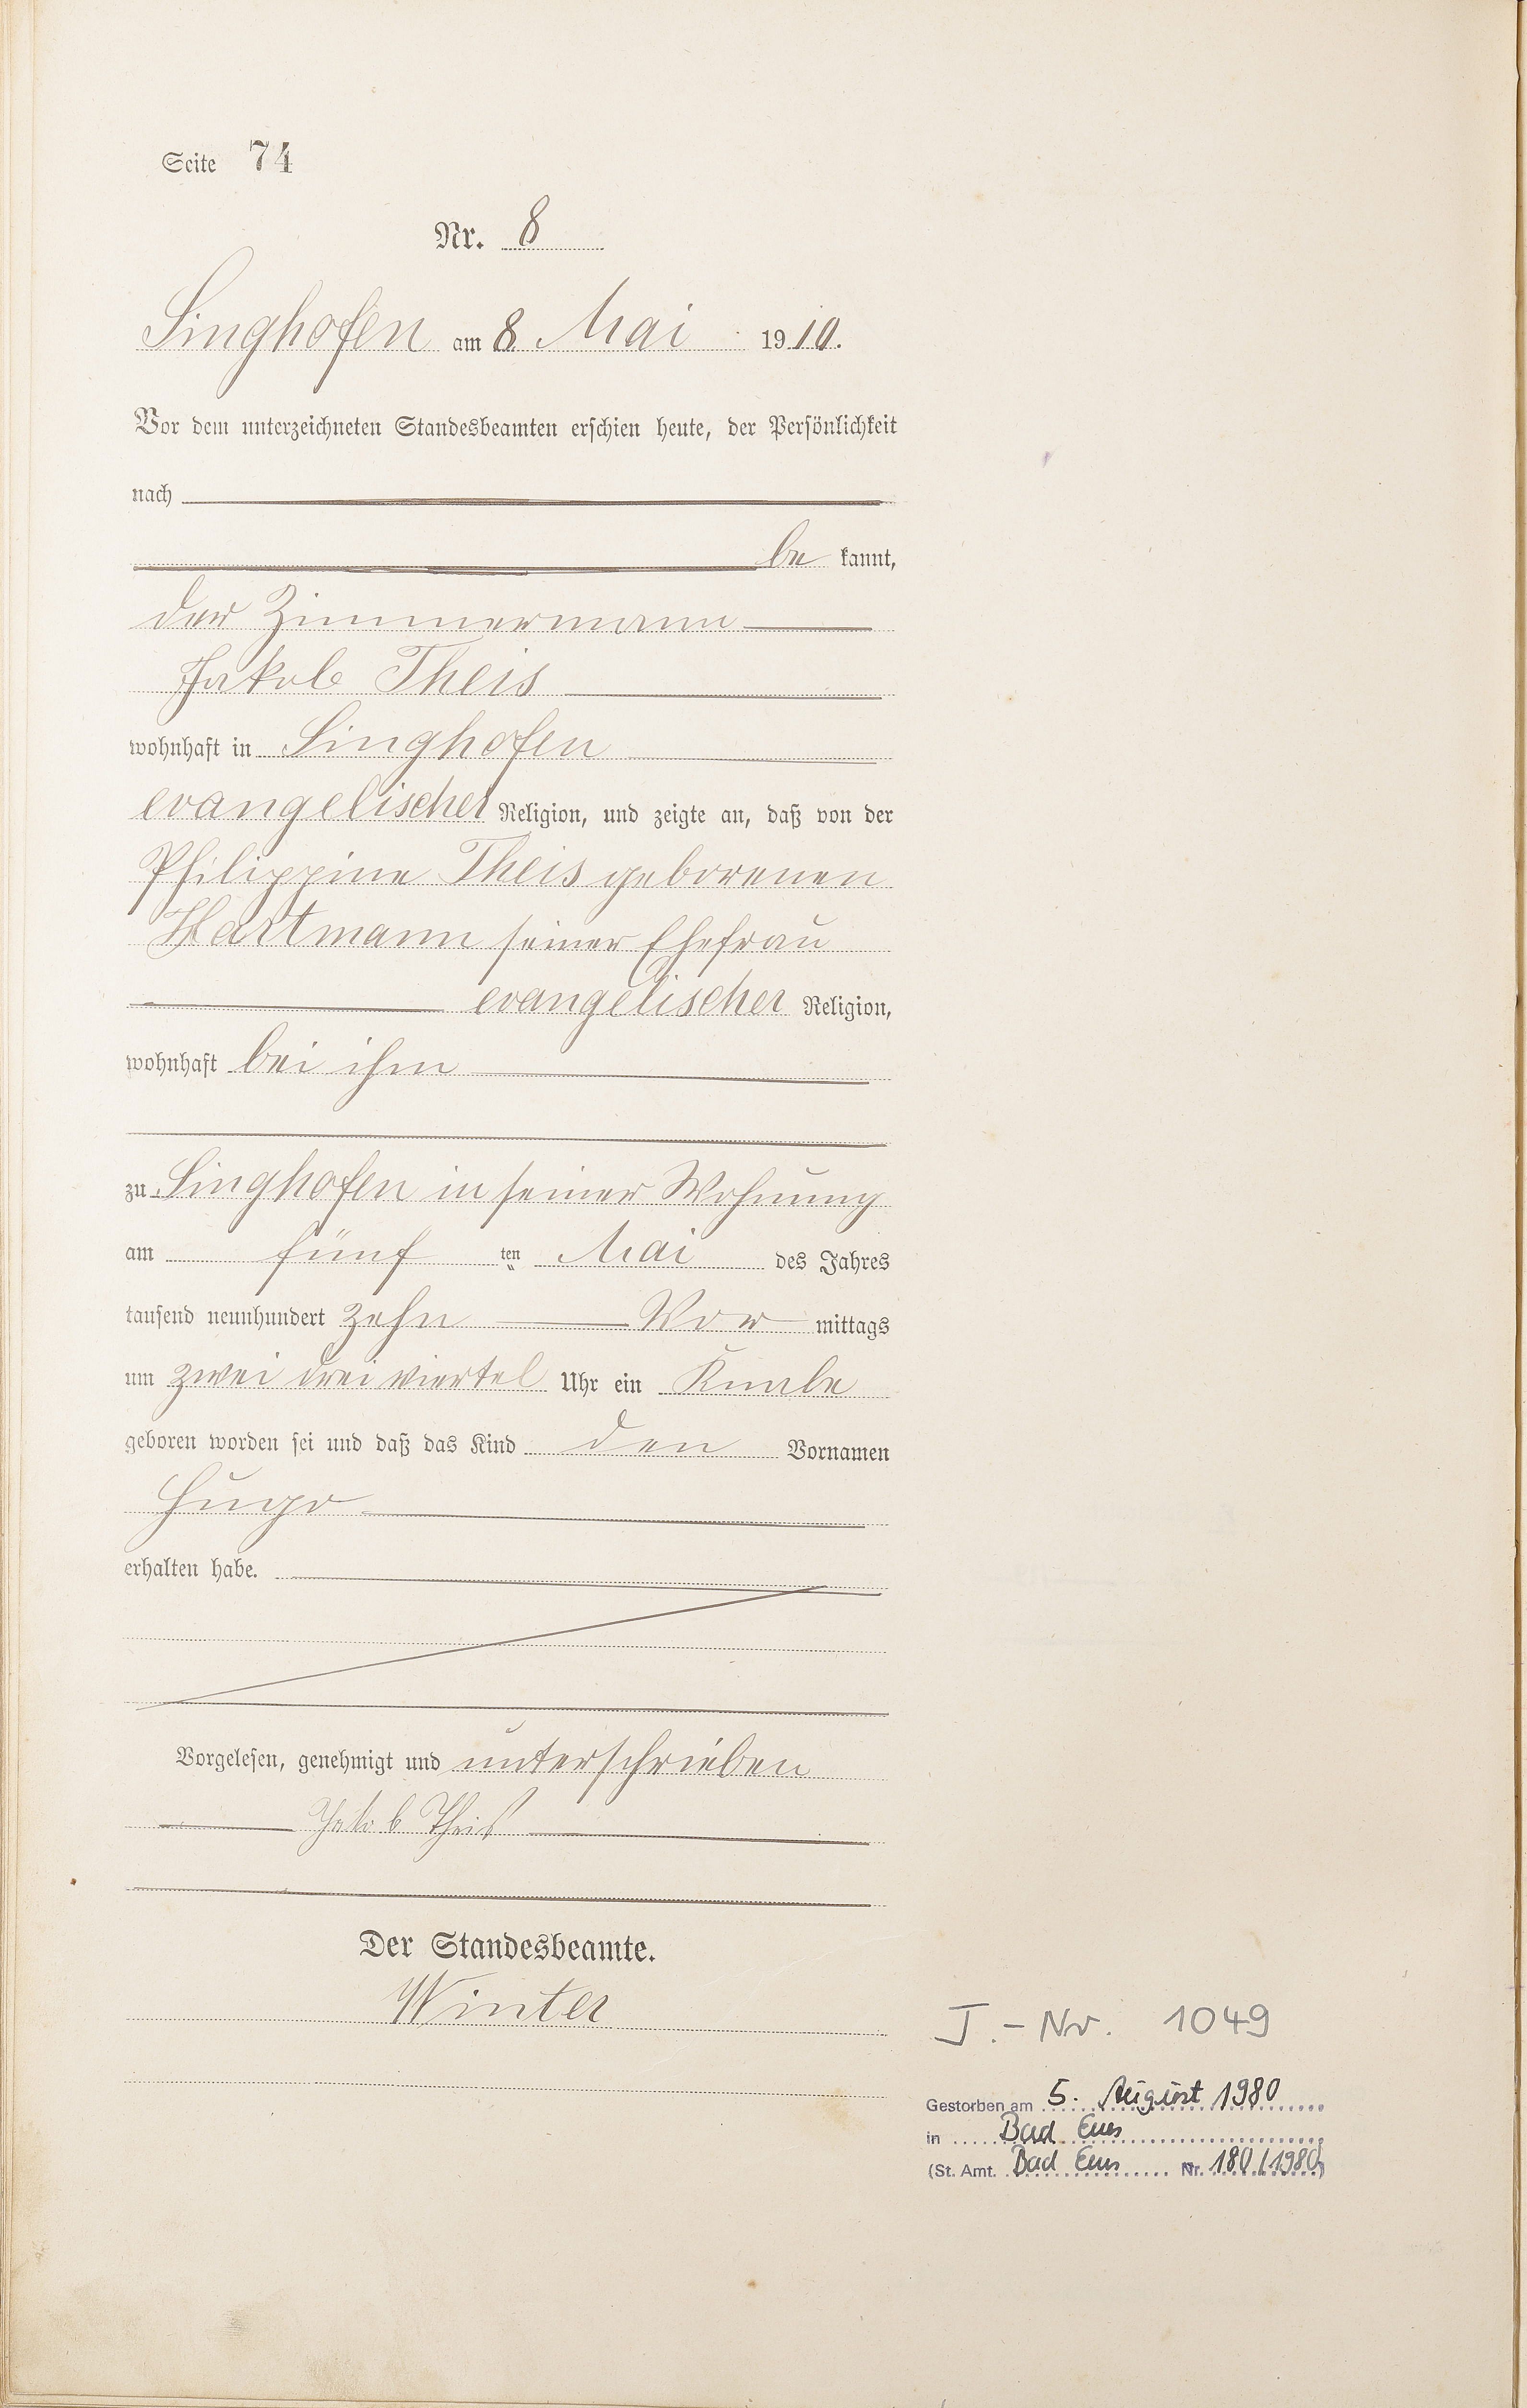 Seite 74
Nr. 8
Singhofen am 8. Mai 1910.
Vor dem unterzeichneten Standesbeamten erschien heute, der Persönlichkeit
nach
be kannt,
der Zimmermann
Jakob Theis
wohnhaft in Singhofen
evangelischer Religion, und zeigte an, daß von der
Philippine Theis geborenen
Hartmann seiner Ehefrau
evangelischer Religion,
wohnhaft bei ihm
zu Singhofen in seiner Wohnung
am fünf ten Mai des Jahres
tausend neunhundert zehn Vor mittags
um zwei drei viertel Uhr ein Knabe
geboren worden sei und daß das Kind den Vornamen
Hugo
erhalten habe.
Vorgelesen, genehmigt und unterschrieben
Jakob Theis
Der Standesbeamte.
Winter
J.-Nr. 1049
Gestorben am 5. August 1980
in Bad Ems
(St. Amt. Bad Ems Nr. 180/1980)